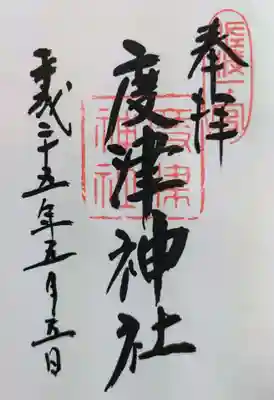 奉拝
度津神社
平成二十五年五月五日
度津神社